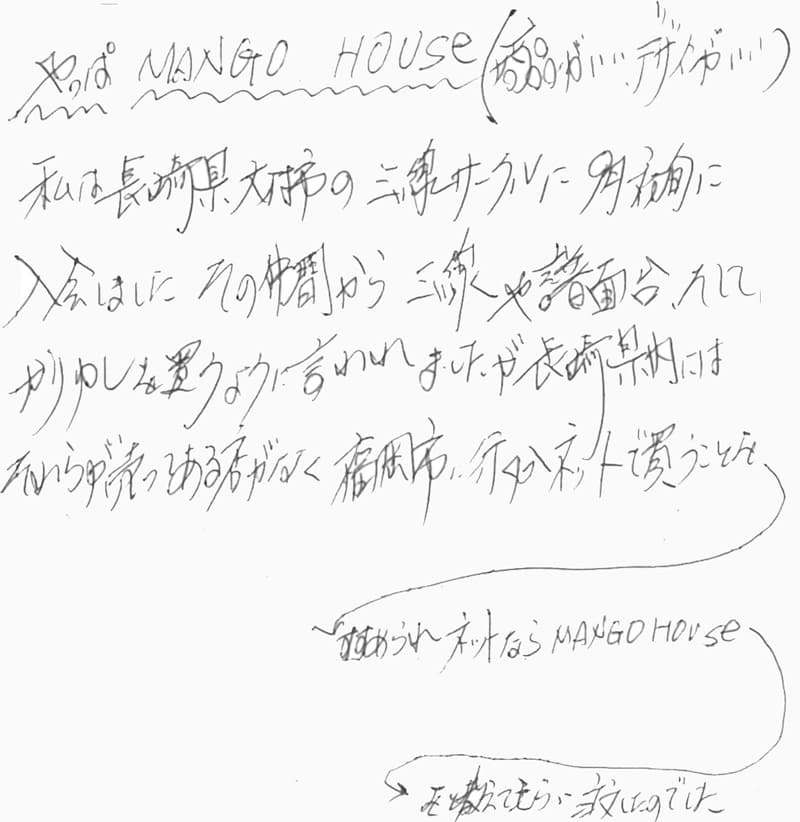 やっぱ MANGO HOUSE(商品がいい、デザインがいい)
私は長崎県大村市の三線サークルに9月初旬に
入会しました その仲間から三線や譜面台、そして
かりゆしを買うように言われましたが長崎県内には
それらが売ってある店がなく 福岡市に行くかネットで買うことを
すすめられ ネットなら MANGO HOUSE
を教えてもらい注文したのでした